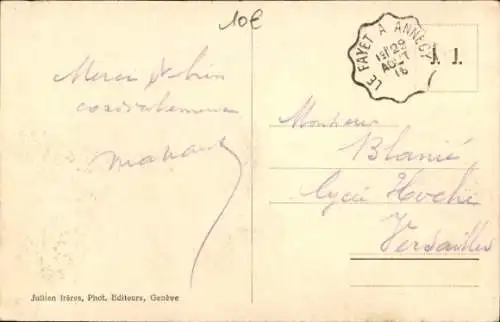 10€
LE FAYET A ANNECY
1E 29
AOUT
16
J. J.
Merci et bien
cordialement
Monsieur
Blanié
Lycée Hoche
Versailles
Jullien frères, Phot. Editeurs, Genève